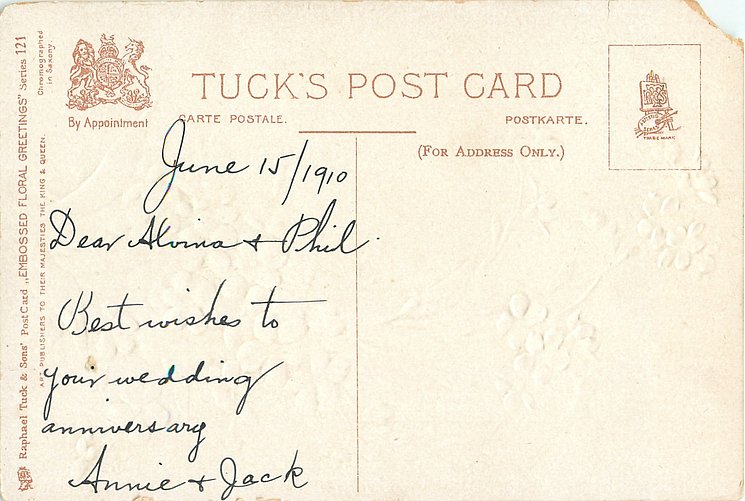 TUCK'S POST CARD
By Appointment
CARTE POSTALE.
POSTKARTE.
(FOR ADDRESS ONLY.)
TRADE MARK
Raphael Tuck & Sons' PostCard „EMBOSSED FLORAL GREETINGS" Series 121
ART PUBLISHERS TO THEIR MAJESTIES THE KING & QUEEN.
Chromographed
in Saxony.
June 15/1910
Dear Alvina & Phil.
Best wishes to
your wedding
anniversary
Annie & Jack